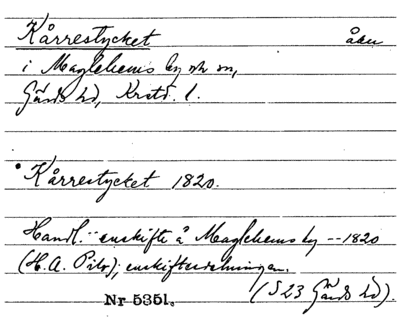 Kårrestycket åker
i Maglehems by o. sn,
Gärds hd, Krstd. l.
Kårrestycket 1820.
Handl. -- enskifte å Maglehems by --1820
(H.A. Pihr); enskiftesdelningen.
(S 23 Gärds hd).
Nr 5351.